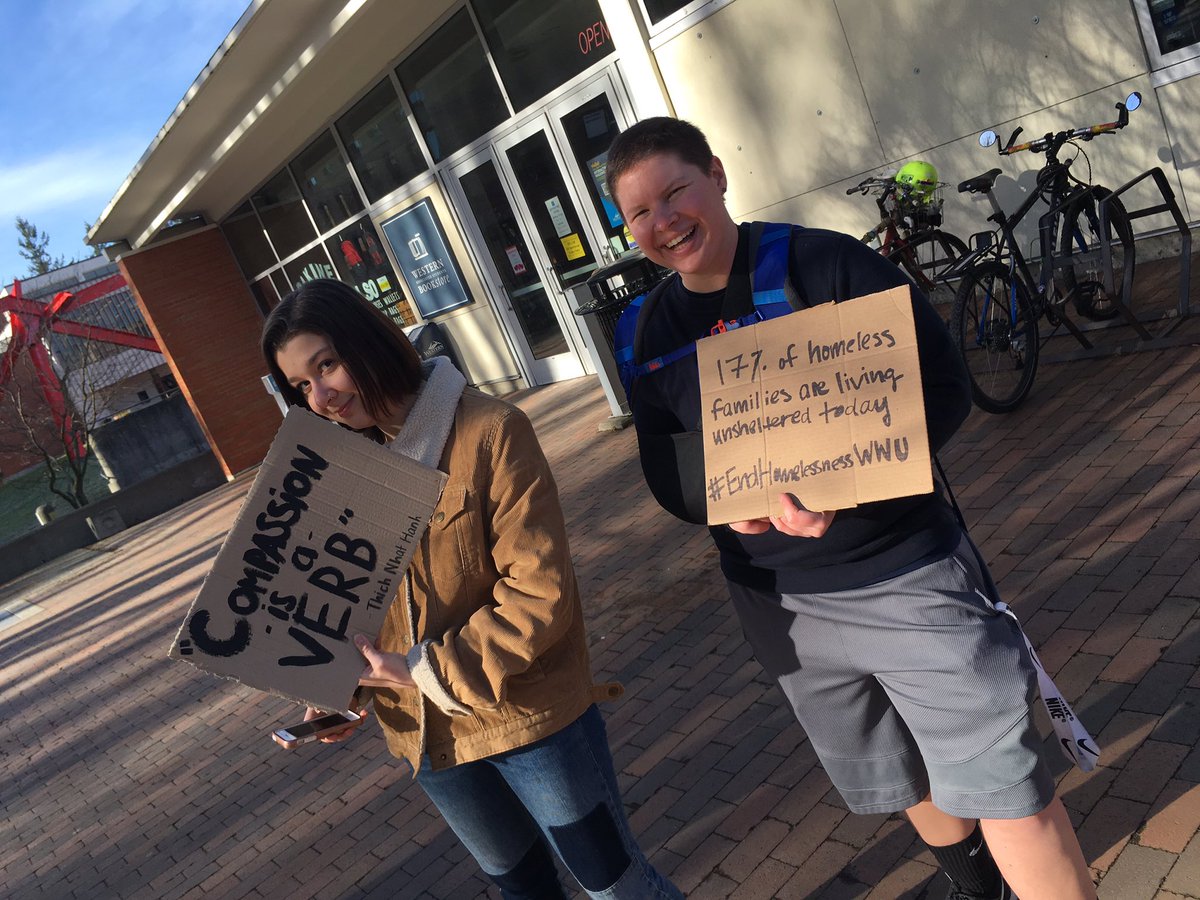 OPEN
WESTERN
BOOKSTORE
"COMPASSION
is a
VERB"
- Thich Nhat Hanh
17% of homeless
families are living
unsheltered today
#EndHomelessnessWWU
NIKE